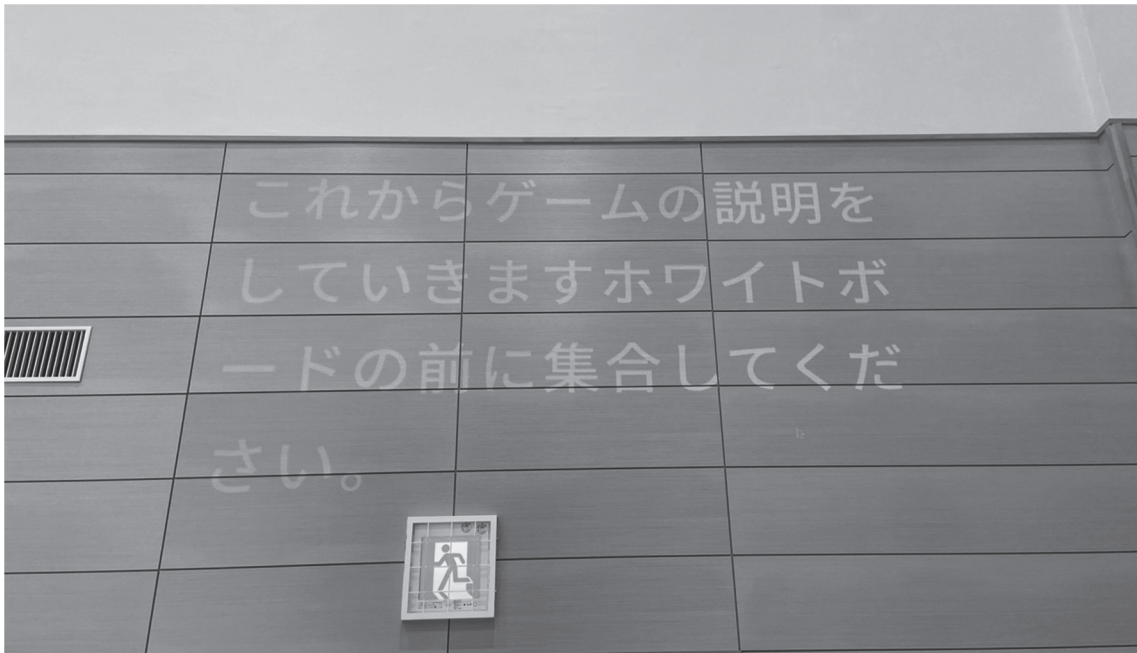 これからゲームの説明を
していきますホワイトボ
ードの前に集合してくだ
さい。